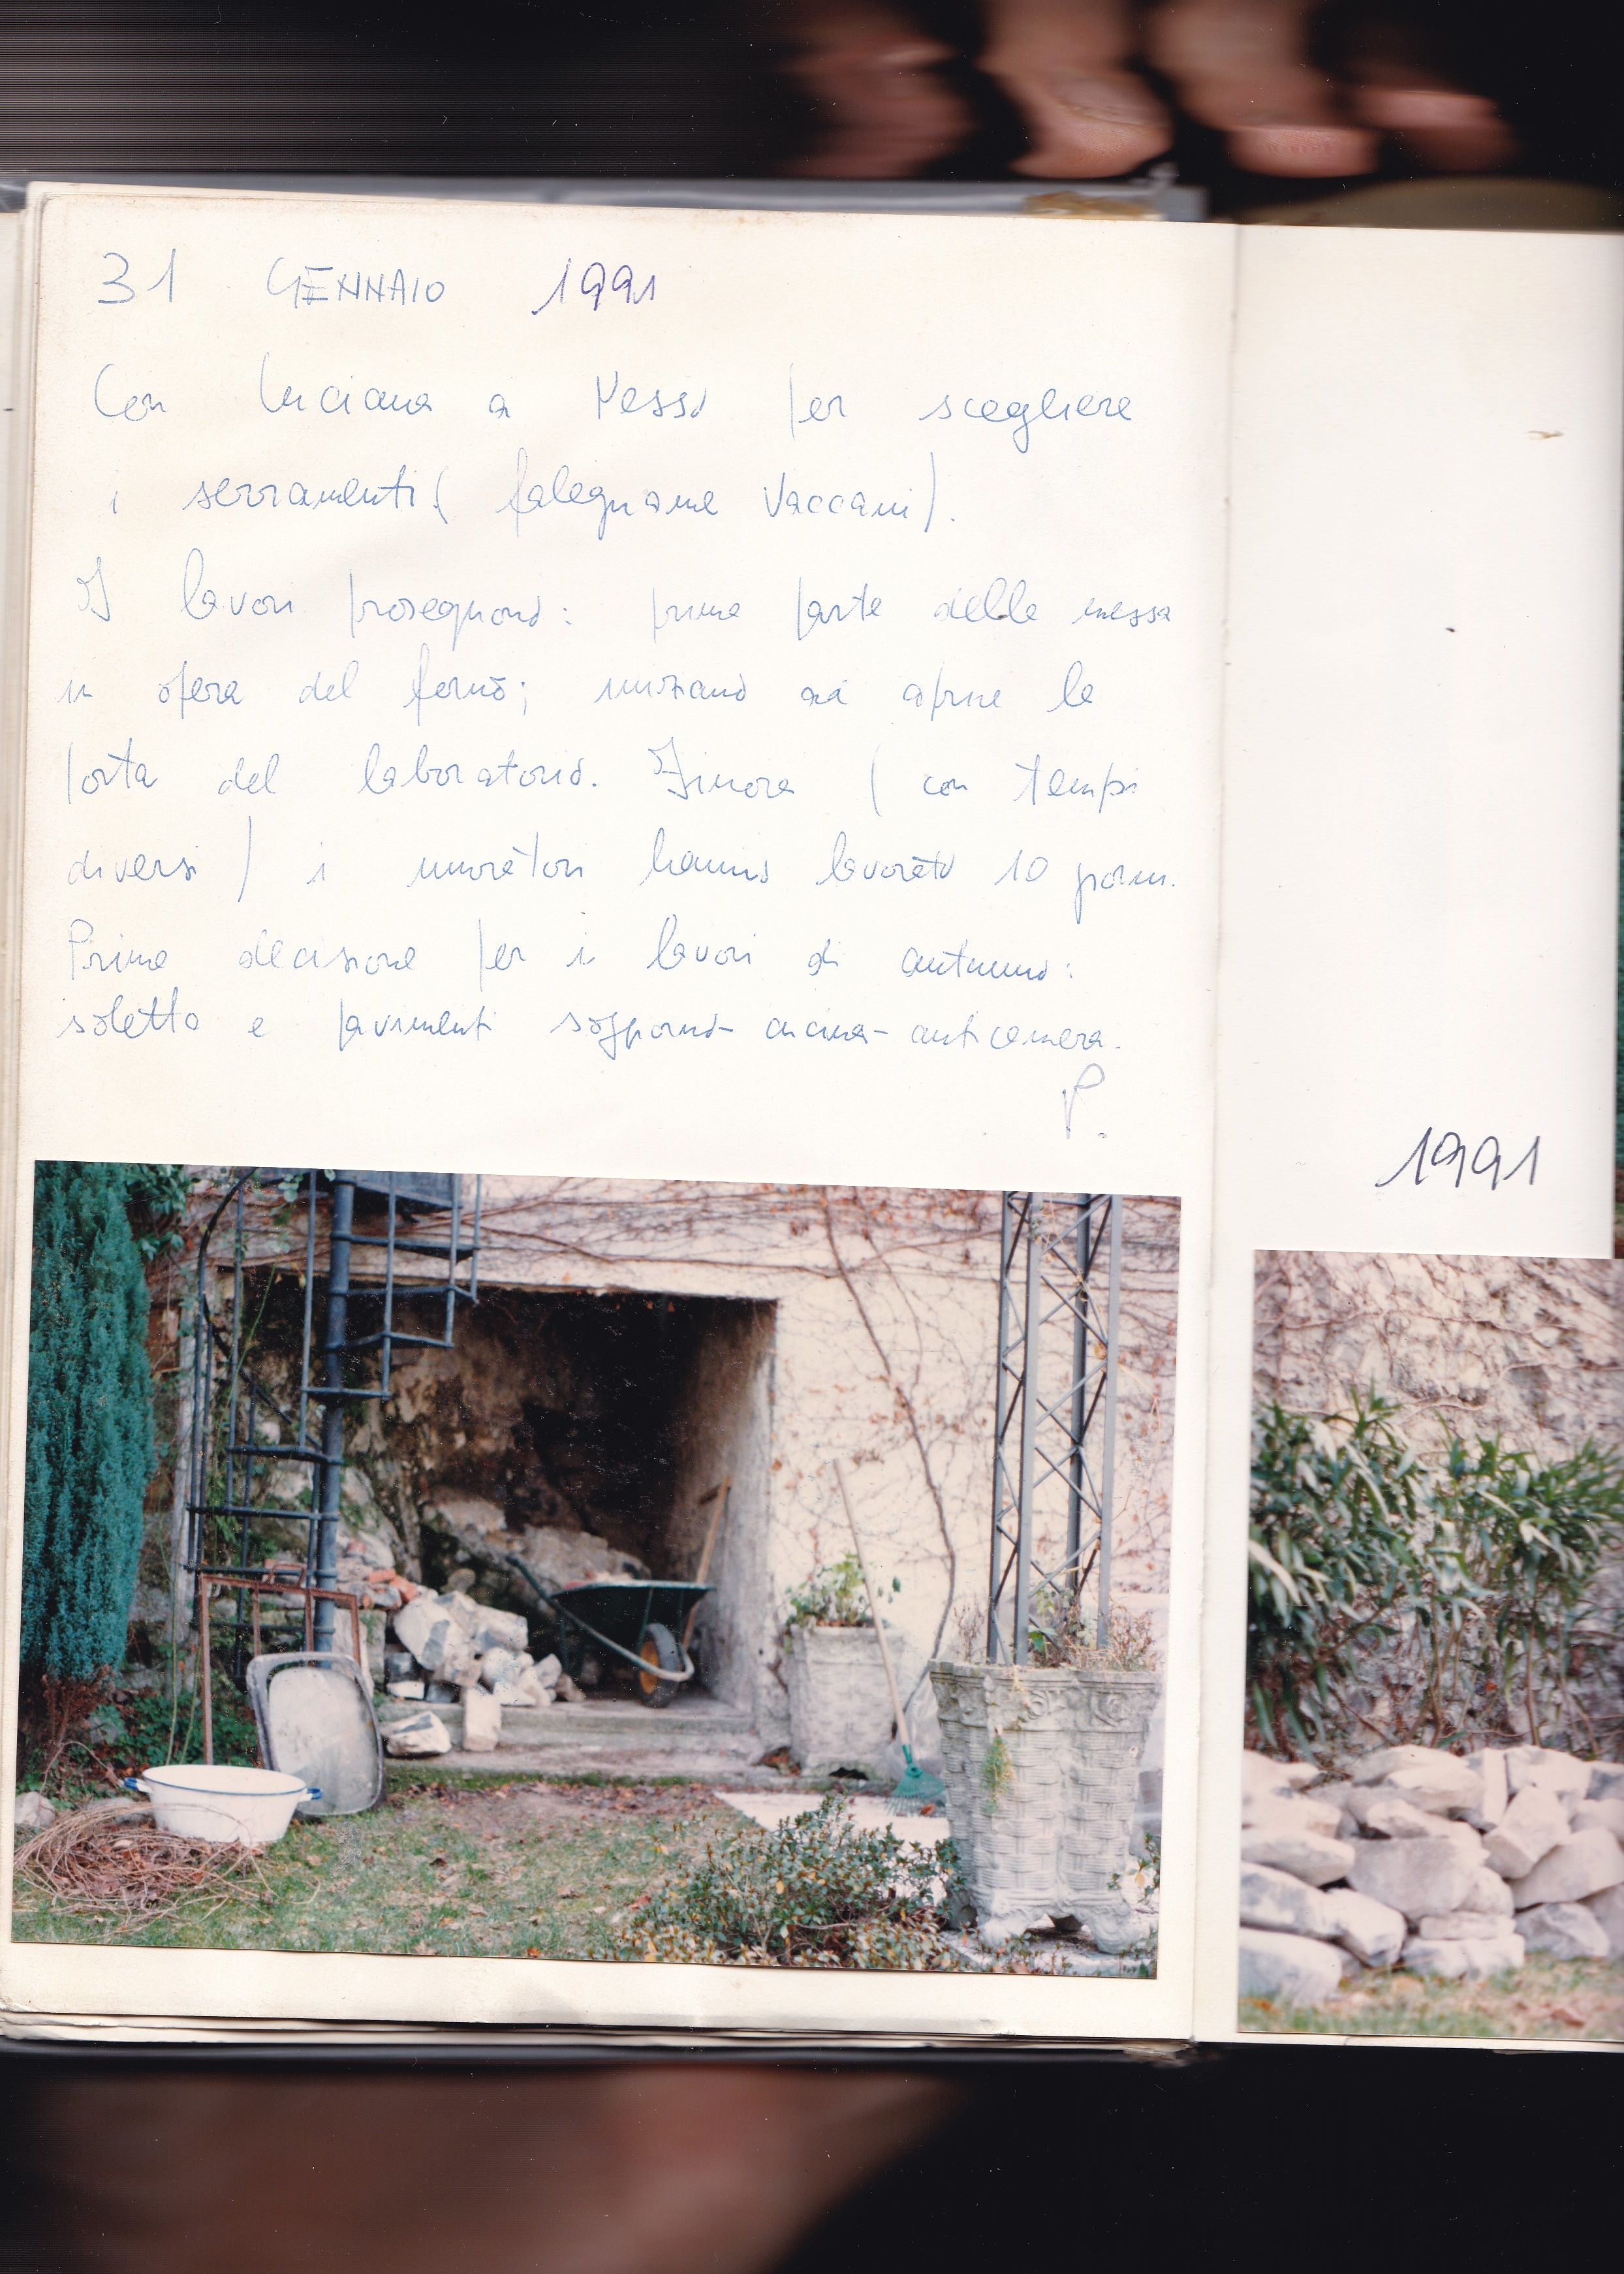 31 GENNAIO 1991
Con Luciana a Nesso per scegliere
i serramenti (falegname Vaccani).
I lavori proseguono: prima parte della messa
in opera del forno; iniziano ad aprire la
porta del laboratorio. Finora (con tempi
diversi) i muratori hanno lavorato 10 giorni.
Prima decisione per i lavori di autunno:
soletta e pavimenti soggiorno - cucina - anticamera.
P.
1991